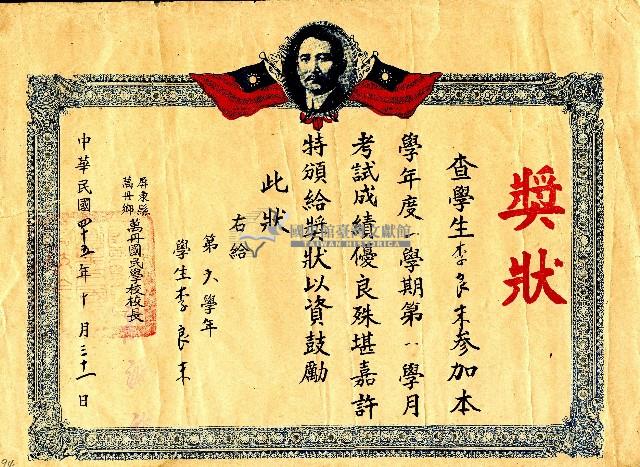 獎狀
查學生李良末参加本
學年度一學期第一學月
考試成績優良殊堪嘉許
特頒給獎狀以資鼓勵
此狀
右給
第六學年
學生李良末
屏東縣
萬丹鄉
萬丹國民學校校長
中華民國四十五年十月三十一日
國史館臺灣文獻館
TAIWAN HISTORICA